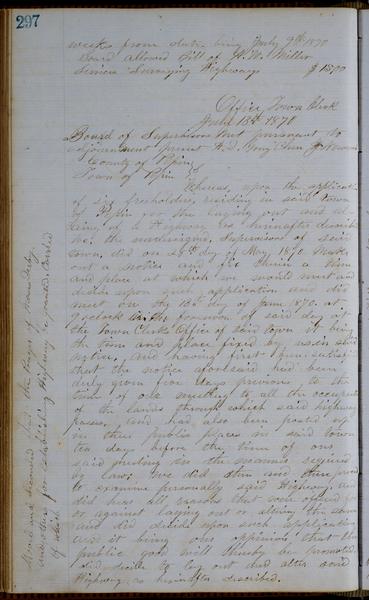 297
weeks from date, being July 9th 1870
Board allowed Bill of H. W. Miller
Service Surveying Highways $15.00
Office Town Clerk
June 18th 1870
Board of Supervisors met pursuant to
adjournment present
County of Pepin
Town of Pepin } SS
Whereas, upon the applicati
of six freeholders, residing in said town
of Pepin for the laying out and al-
tering of a Highway hereinafter describ
ed. the undersigned, Supervisors of said
town, did on the day of May 1870. Make
out a notice and fix therein a time
and place at which we would meet and
decide upon such application and did
meet on the 18th day of June 1870. at
9 o'clock in the forenoon of said day at
the Town Clerks Office of said town it being
the time and place fixed by us in said
notice, And having first been satisfied
that the notice aforesaid had been
duly given five days previous to the
time of our meeting to all the occupants
of the lands through which said highway
passes, And had also been posted up
in three public places in said town
ten days before the time of our
said meeting in the manner required
by law; We did then and there proceed
to examine personally said Highway and
did hear all reasons that were offered for
or against laying out or altering the same
and did decide upon such application
and it being our opinion, that the
public good will thereby be promoted
did decide to lay out and alter said
Highway as hereinafter described.
Moved and Seconded that the Prayer of
and others for establishing Highway be granted. Carried
of which